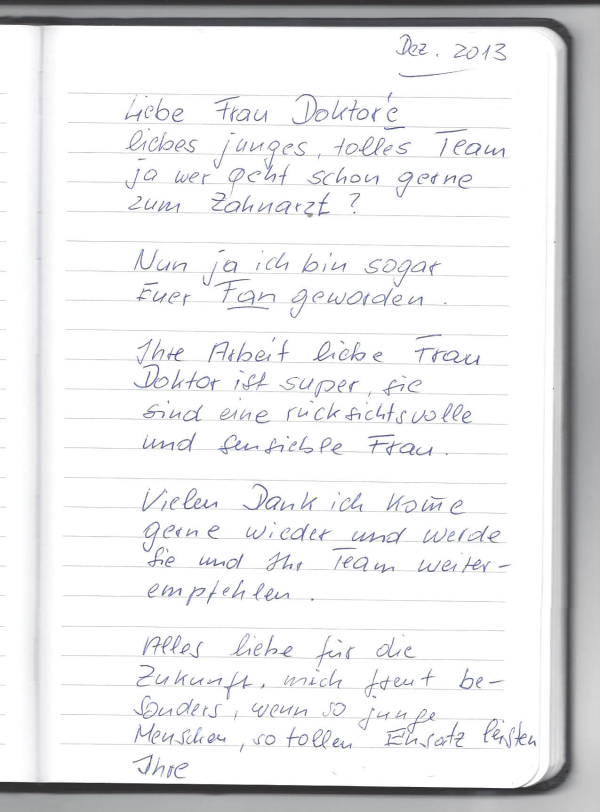 Dez. 2013
Liebe Frau Doktor e
liebes junges, tolles Team
ja wer geht schon gerne
zum Zahnarzt?
Nun ja ich bin sogar
Euer Fan geworden.
Ihre Arbeit liebe Frau
Doktor ist super, sie
sind eine rücksichtsvolle
und sensieble Frau.
Vielen Dank ich kom̄e
gerne wieder und werde
Sie und Ihr Team weiter-
empfehlen.
Alles liebe für die
Zukunft, mich freut be-
sonders, wenn so junge
Menschen, so tollen Einsatz leisten
Ihre